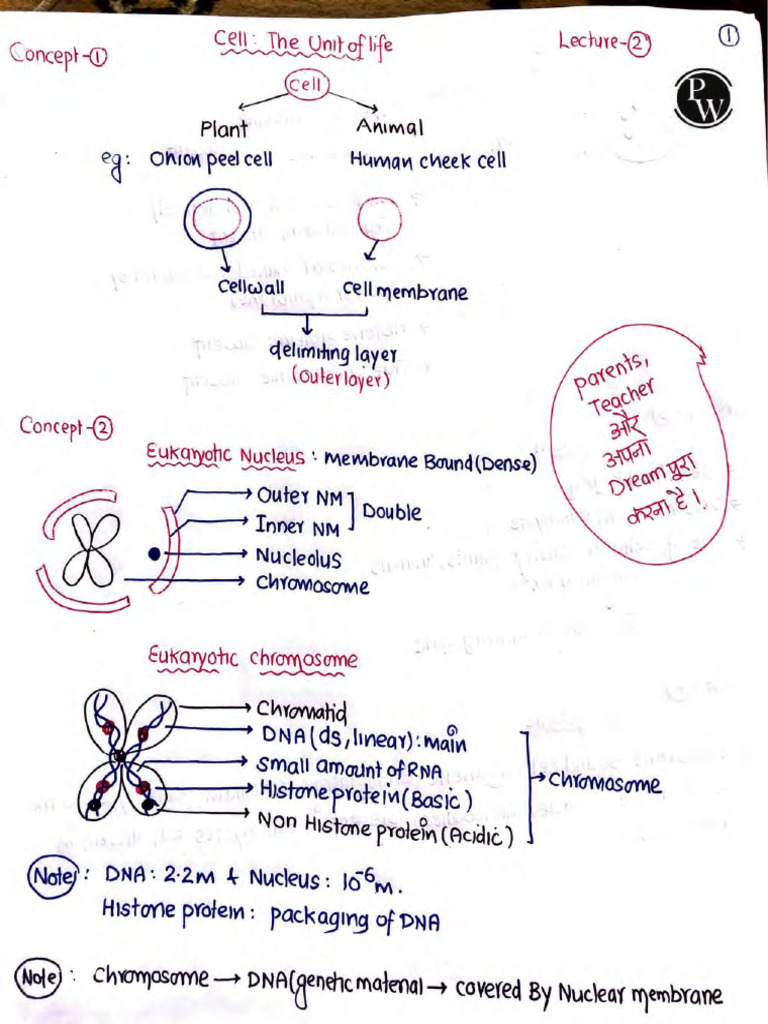 Concept-①
Cell: The Unit of life
Lecture-②
①
PW
Cell
Plant
Animal
eg: Onion peel cell
Human cheek cell
Cellwall
Cell membrane
delimiting layer
(outer layer)
parents,
Teacher
और
अपना
Dream पूरा
करना है।
Concept-②
Eukaryotic Nucleus: membrane Bound (Dense)
Outer NM
Inner NM
Double
Nucleolus
Chromosome
Eukaryotic chromosome
Chromatid
DNA (ds, linear): main
Small amount of RNA
Histone protein (Basic)
Non Histone protein (Acidic)
Chromosome
Note: DNA: 2.2m & Nucleus: 10⁻⁶m.
Histone protein: packaging of DNA
Note: Chromosome → DNA(genetic material → covered By Nuclear membrane